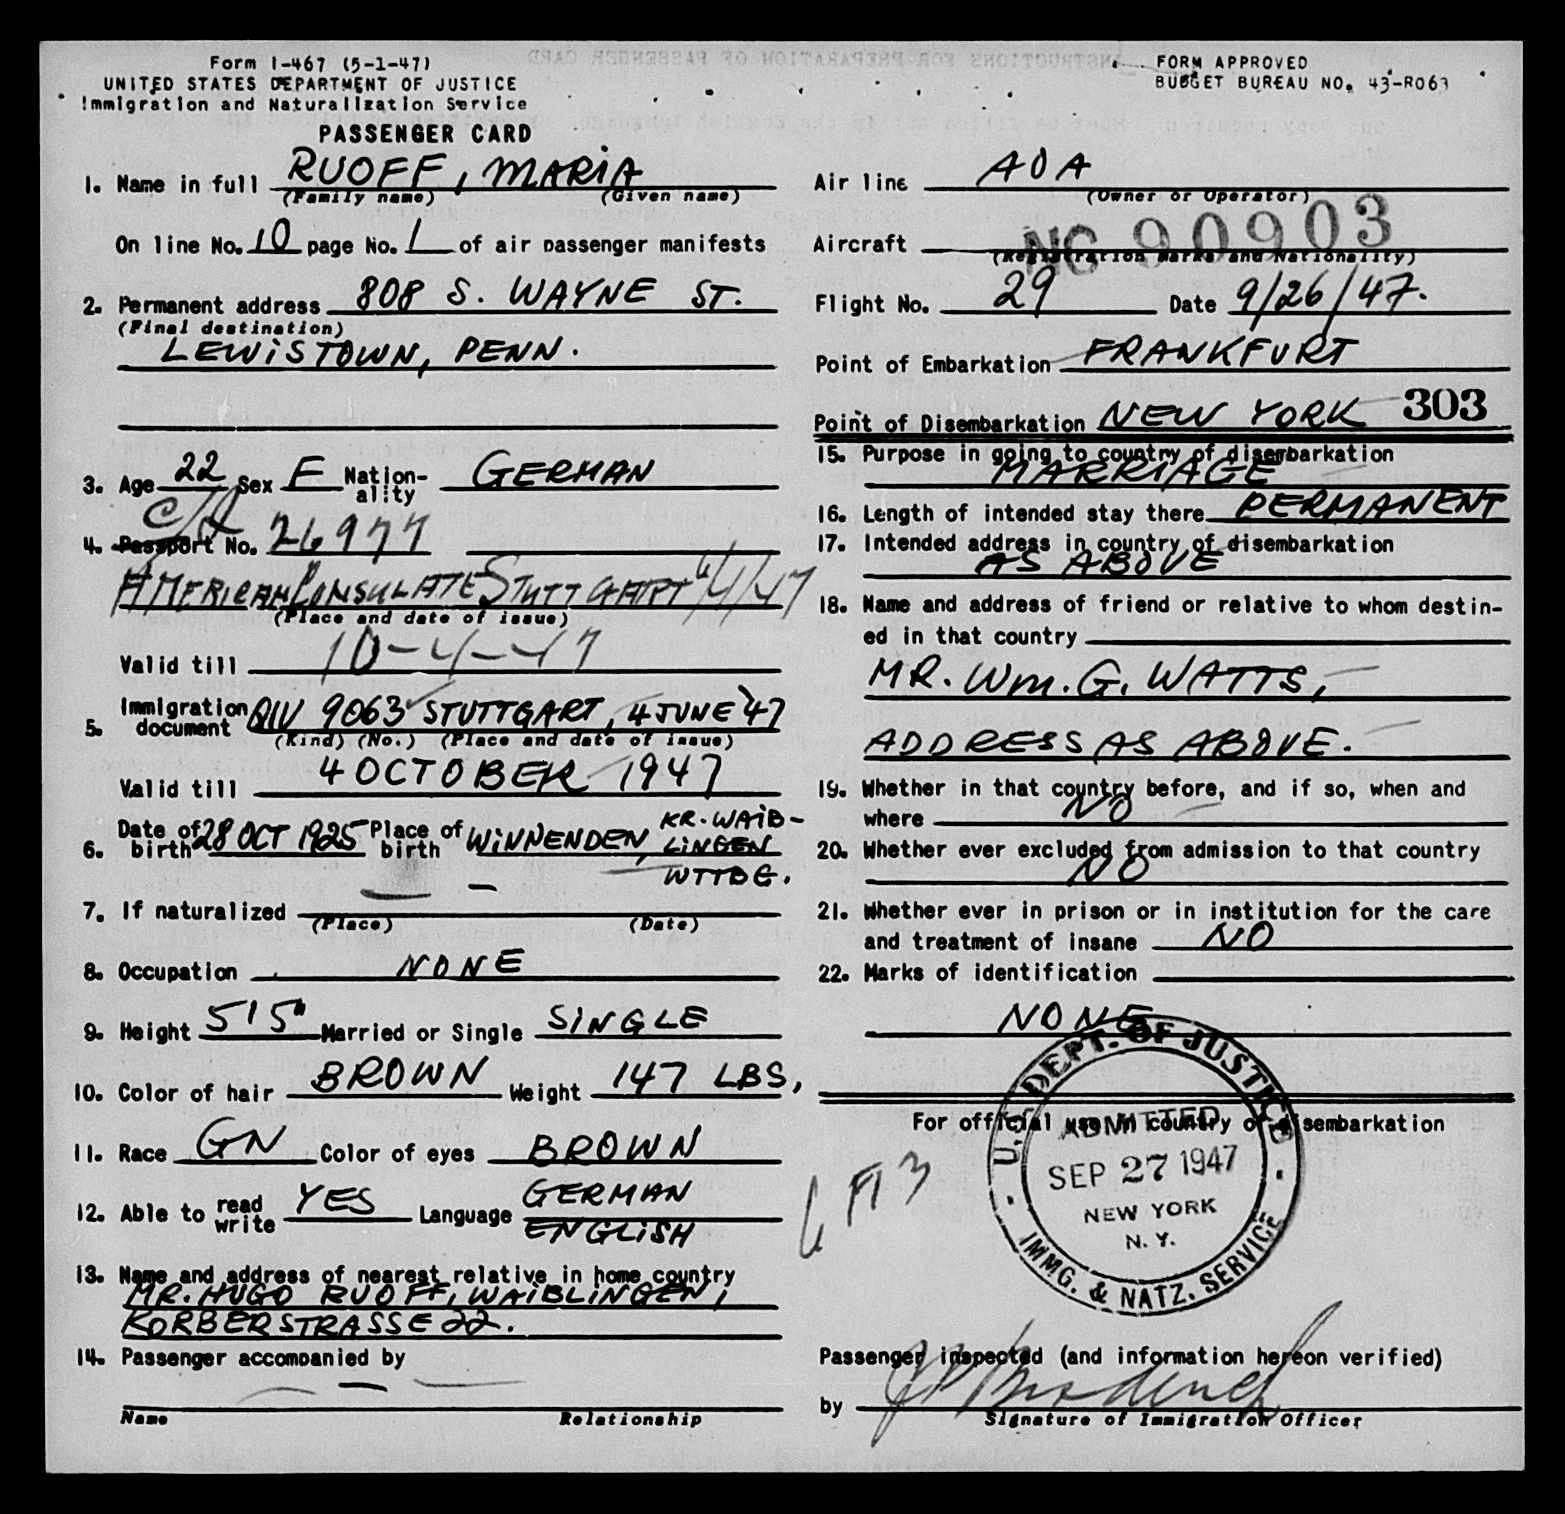 Form I-467 (5-1-47)
UNITED STATES DEPARTMENT OF JUSTICE
Immigration and Naturalization Service
PASSENGER CARD
1. Name in full RUOFF, MARIA
(Family name) (Given name)
On line No. 10 page No. 1 of air passenger manifests
2. Permanent address 808 S. WAYNE ST.
(Final destination)
LEWISTOWN, PENN.
3. Age 22 Sex F Nation-ality GERMAN
4. Passport No. 26977
AMERICAN CONSULATE STUTTGART 6/4/47
(Place and date of issue)
Valid till 10-4-47
5. Immigration document QIV 9063 STUTTGART, 4 JUNE '47
(Kind) (No.) (Place and date of issue)
Valid till 4 OCTOBER 1947
6. Date of birth 28 OCT 1925 Place of birth WINNENDEN, KR. WAIB-
LINGEN
WTTBG.
7. If naturalized — —
(Place) (Date)
8. Occupation NONE
9. Height 5'5" Married or Single SINGLE
10. Color of hair BROWN Weight 147 LBS,
11. Race GN Color of eyes BROWN
12. Able to read write YES Language GERMAN
ENGLISH
13. Name and address of nearest relative in home country
MR. HUGO RUOFF, WAIBLINGEN,
KORBERSTRASSE 22.
14. Passenger accompanied by
—
Name Relationship
FORM APPROVED
BUDGET BUREAU NO. 43-R063
Air line AOA
(Owner or Operator)
Aircraft NC 90903
(Registration Marks and Nationality)
Flight No. 29 Date 9/26/47.
Point of Embarkation FRANKFURT
Point of Disembarkation NEW YORK 303
15. Purpose in going to country of disembarkation
MARRIAGE
16. Length of intended stay there PERMANENT
17. Intended address in country of disembarkation
AS ABOVE
18. Name and address of friend or relative to whom destin-
ed in that country
MR. WM. G. WATTS,
ADDRESS AS ABOVE.
19. Whether in that country before, and if so, when and
where NO
20. Whether ever excluded from admission to that country
NO
21. Whether ever in prison or in institution for the care
and treatment of insane NO
22. Marks of identification
NONE
For official use in country of disembarkation
U.S. DEPT. OF JUSTICE
ADMITTED
SEP 27 1947
NEW YORK
N. Y.
IMMG. & NATZ. SERVICE
Passenger inspected (and information hereon verified)
by
Signature of Immigration Officer